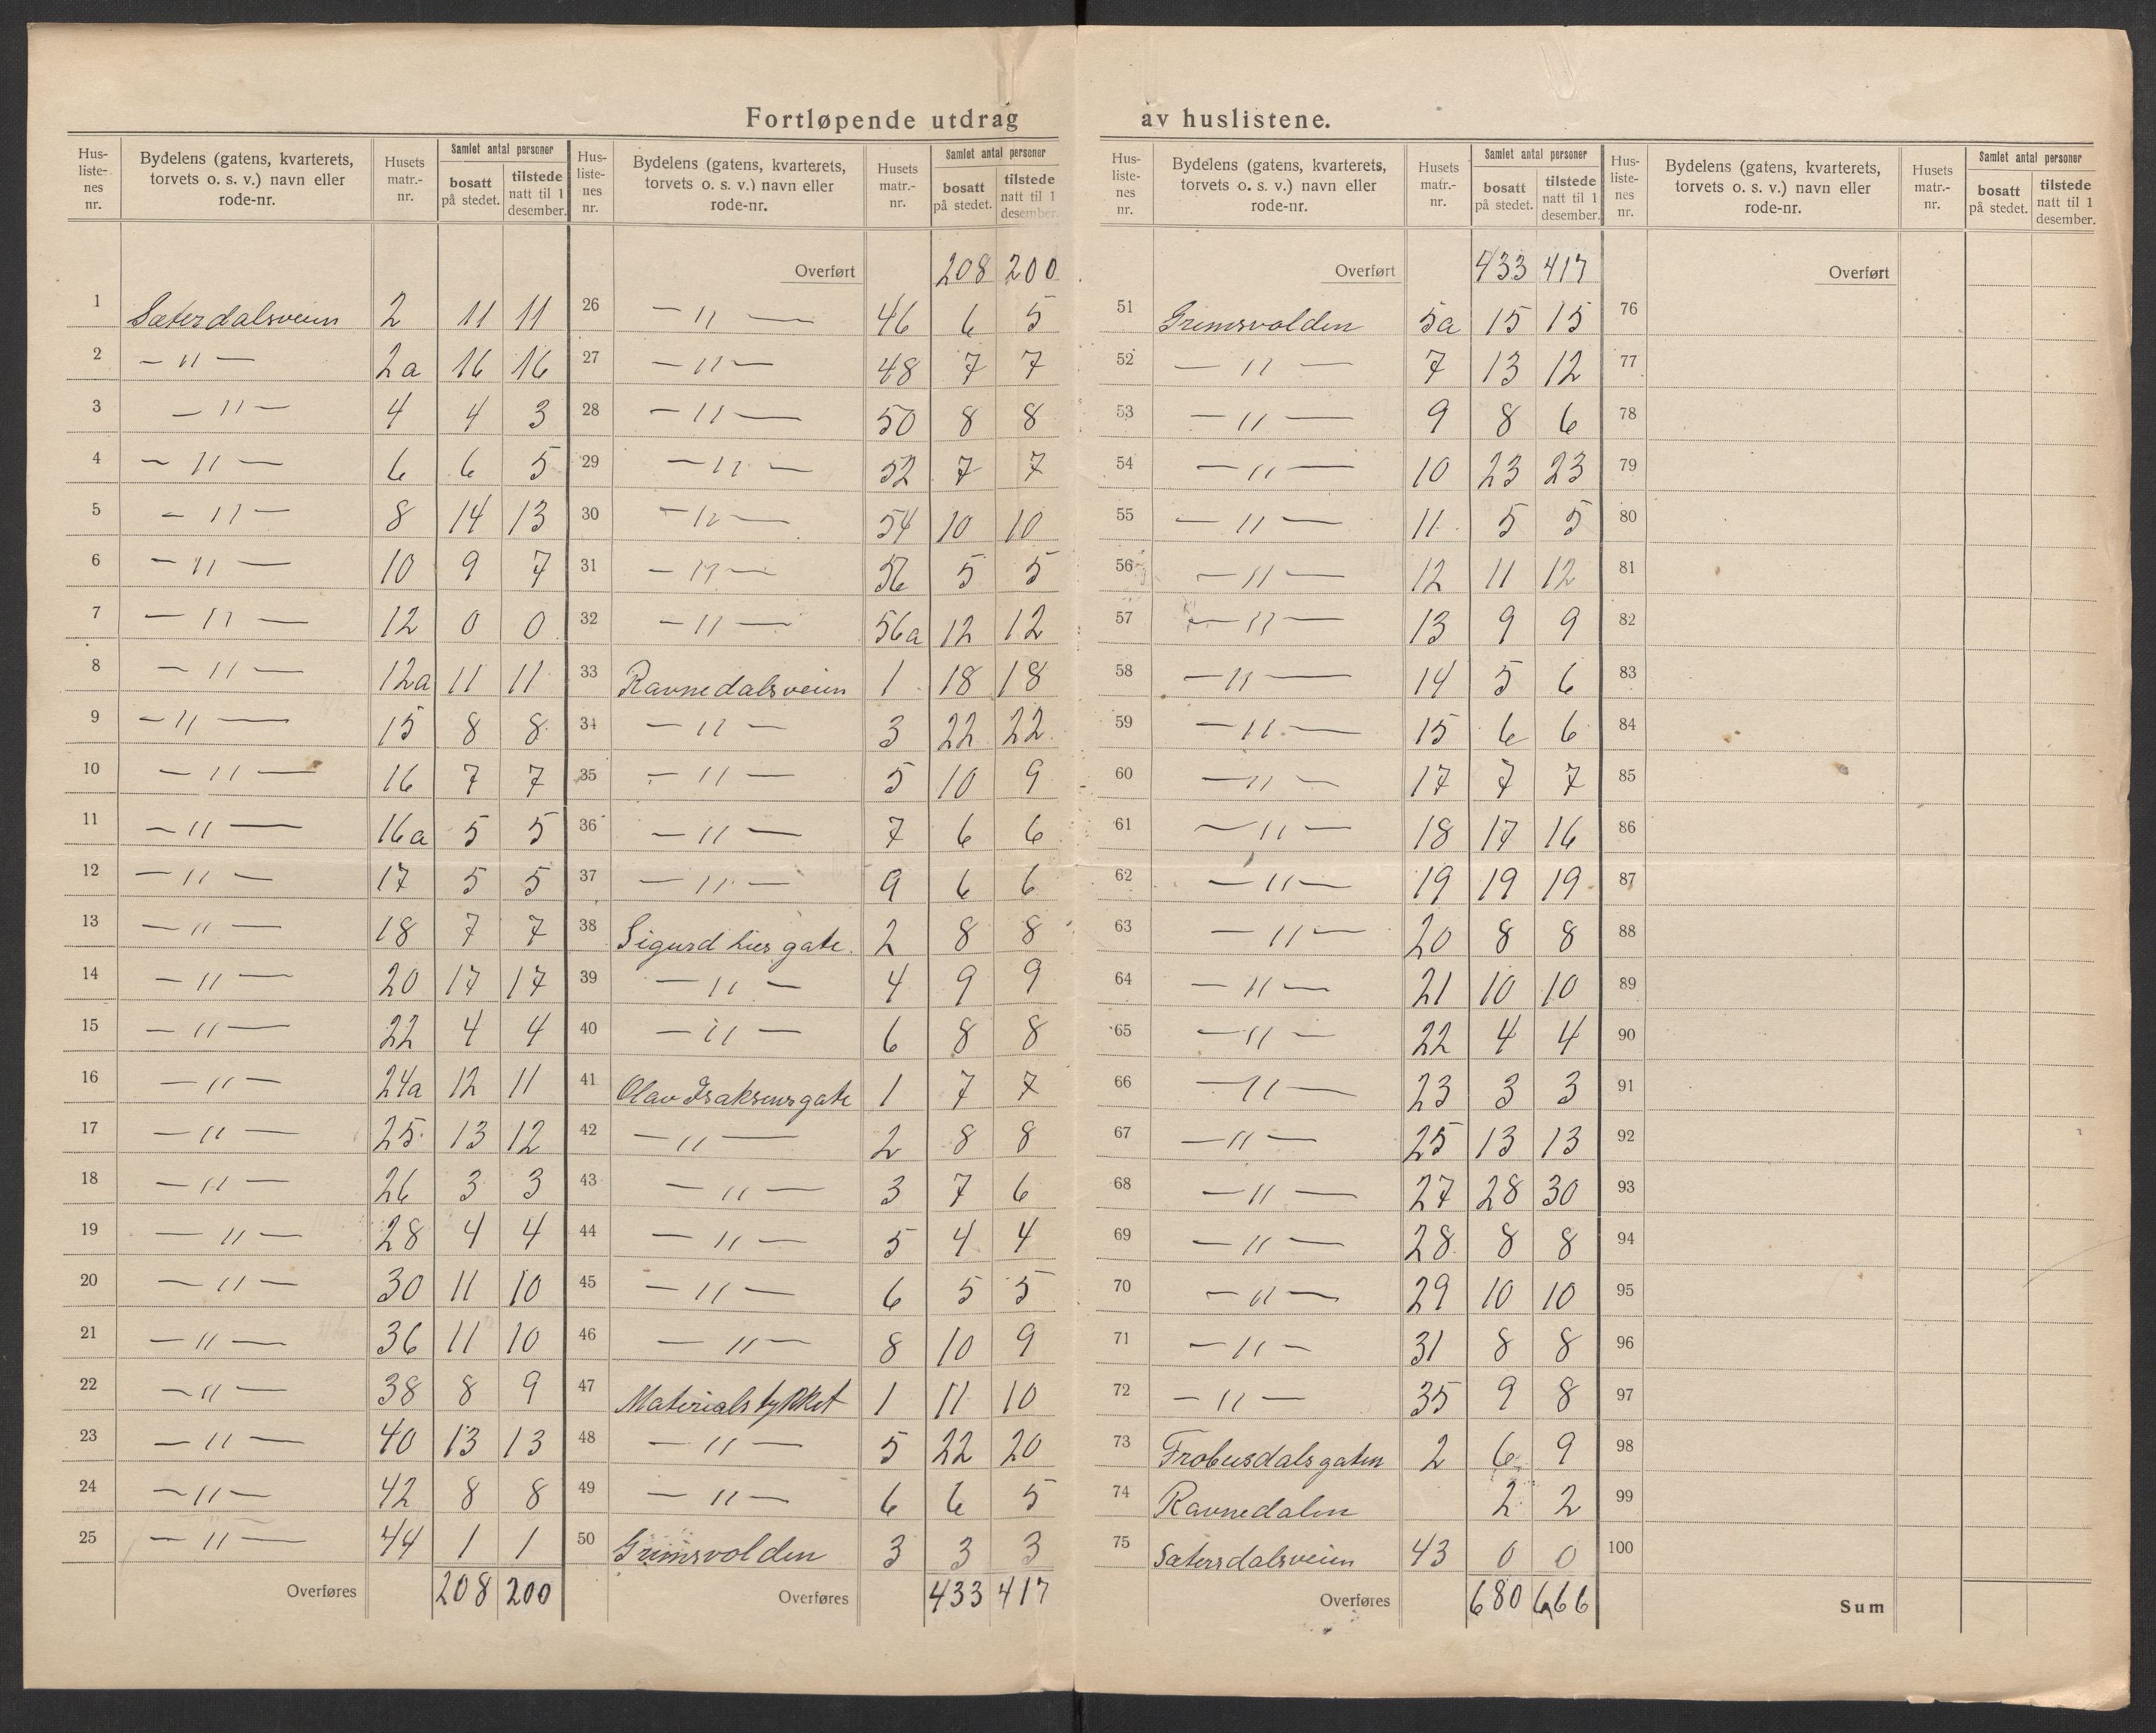 Fortløpende utdrag av huslistene.
Hus-liste-nes nr. | Bydelens (gatens, kvarterets, torvets o. s. v.) navn eller rode-nr. | Husets matr.-nr. | Samlet antal personer | bosatt på stedet. | tilstede natt til 1 desember.
1 Sæterdalsveien 2 11 11
2 — 〃 — 2a 16 16
3 — 〃 — 4 4 3
4 — 〃 — 6 6 5
5 — 〃 — 8 14 13
6 — 〃 — 10 9 7
7 — 〃 — 12 0 0
8 — 〃 — 12a 11 11
9 — 〃 — 15 8 8
10 — 〃 — 16 7 7
11 — 〃 — 16a 5 5
12 — 〃 — 17 5 5
13 — 〃 — 18 7 7
14 — 〃 — 20 17 17
15 — 〃 — 22 4 4
16 — 〃 — 24a 12 11
17 — 〃 — 25 13 12
18 — 〃 — 26 3 3
19 — 〃 — 28 4 4
20 — 〃 — 30 11 10
21 — 〃 — 36 11 10
22 — 〃 — 38 8 9
23 — 〃 — 40 13 13
24 — 〃 — 42 8 8
25 — 〃 — 44 1 1
Overføres 208 200
Hus-liste-nes nr. | Bydelens (gatens, kvarterets, torvets o. s. v.) navn eller rode-nr. | Husets matr.-nr. | Samlet antal personer | bosatt på stedet. | tilstede natt til 1 desember.
Overført 208 200
26 — 〃 — 46 6 5
27 — 〃 — 48 7 7
28 — 〃 — 50 8 8
29 — 〃 — 52 7 7
30 — 〃 — 54 10 10
31 — 〃 — 56 5 5
32 — 〃 — 56a 12 12
33 Ravnedalsveien 1 18 18
34 — 〃 — 3 22 22
35 — 〃 — 5 10 9
36 — 〃 — 7 6 6
37 — 〃 — 9 6 6
38 Sigurd Lies gate. 2 8 8
39 — 〃 — 4 9 9
40 — 〃 — 6 8 8
41 Olav Isaksensgate 1 7 7
42 — 〃 — 2 8 8
43 — 〃 — 3 7 6
44 — 〃 — 5 4 4
45 — 〃 — 6 5 5
46 — 〃 — 8 10 9
47 Materialstykket 1 11 10
48 — 〃 — 5 22 20
49 — 〃 — 6 6 5
50 Grimsvolden 3 3 3
Overføres 433 417
Hus-liste-nes nr. | Bydelens (gatens, kvarterets, torvets o. s. v.) navn eller rode-nr. | Husets matr.-nr. | Samlet antal personer | bosatt på stedet. | tilstede natt til 1 desember.
Overført 433 417
51 Grimsvolden 5a 15 15
52 — 〃 — 7 13 12
53 — 〃 — 9 8 6
54 — 〃 — 10 23 23
55 — 〃 — 11 5 5
56 — 〃 — 12 11 12
57 — 〃 — 13 9 9
58 — 〃 — 14 5 6
59 — 〃 — 15 6 6
60 — 〃 — 17 7 7
61 — 〃 — 18 17 16
62 — 〃 — 19 19 19
63 — 〃 — 20 8 8
64 — 〃 — 21 10 10
65 — 〃 — 22 4 4
66 — 〃 — 23 3 3
67 — 〃 — 25 13 13
68 — 〃 — 27 28 30
69 — 〃 — 28 8 8
70 — 〃 — 29 10 10
71 — 〃 — 31 8 8
72 — 〃 — 35 9 8
73 Frobusdalsgaten 2 6 9
74 Ravnedalen 2 2
75 Sætersdalsveien 43 0 0
Overføres 680 666
Hus-liste-nes nr. | Bydelens (gatens, kvarterets, torvets o. s. v.) navn eller rode-nr. | Husets matr.-nr. | Samlet antal personer | bosatt på stedet. | tilstede natt til 1 desember.
Overført
76
77
78
79
80
81
82
83
84
85
86
87
88
89
90
91
92
93
94
95
96
97
98
99
100
Sum